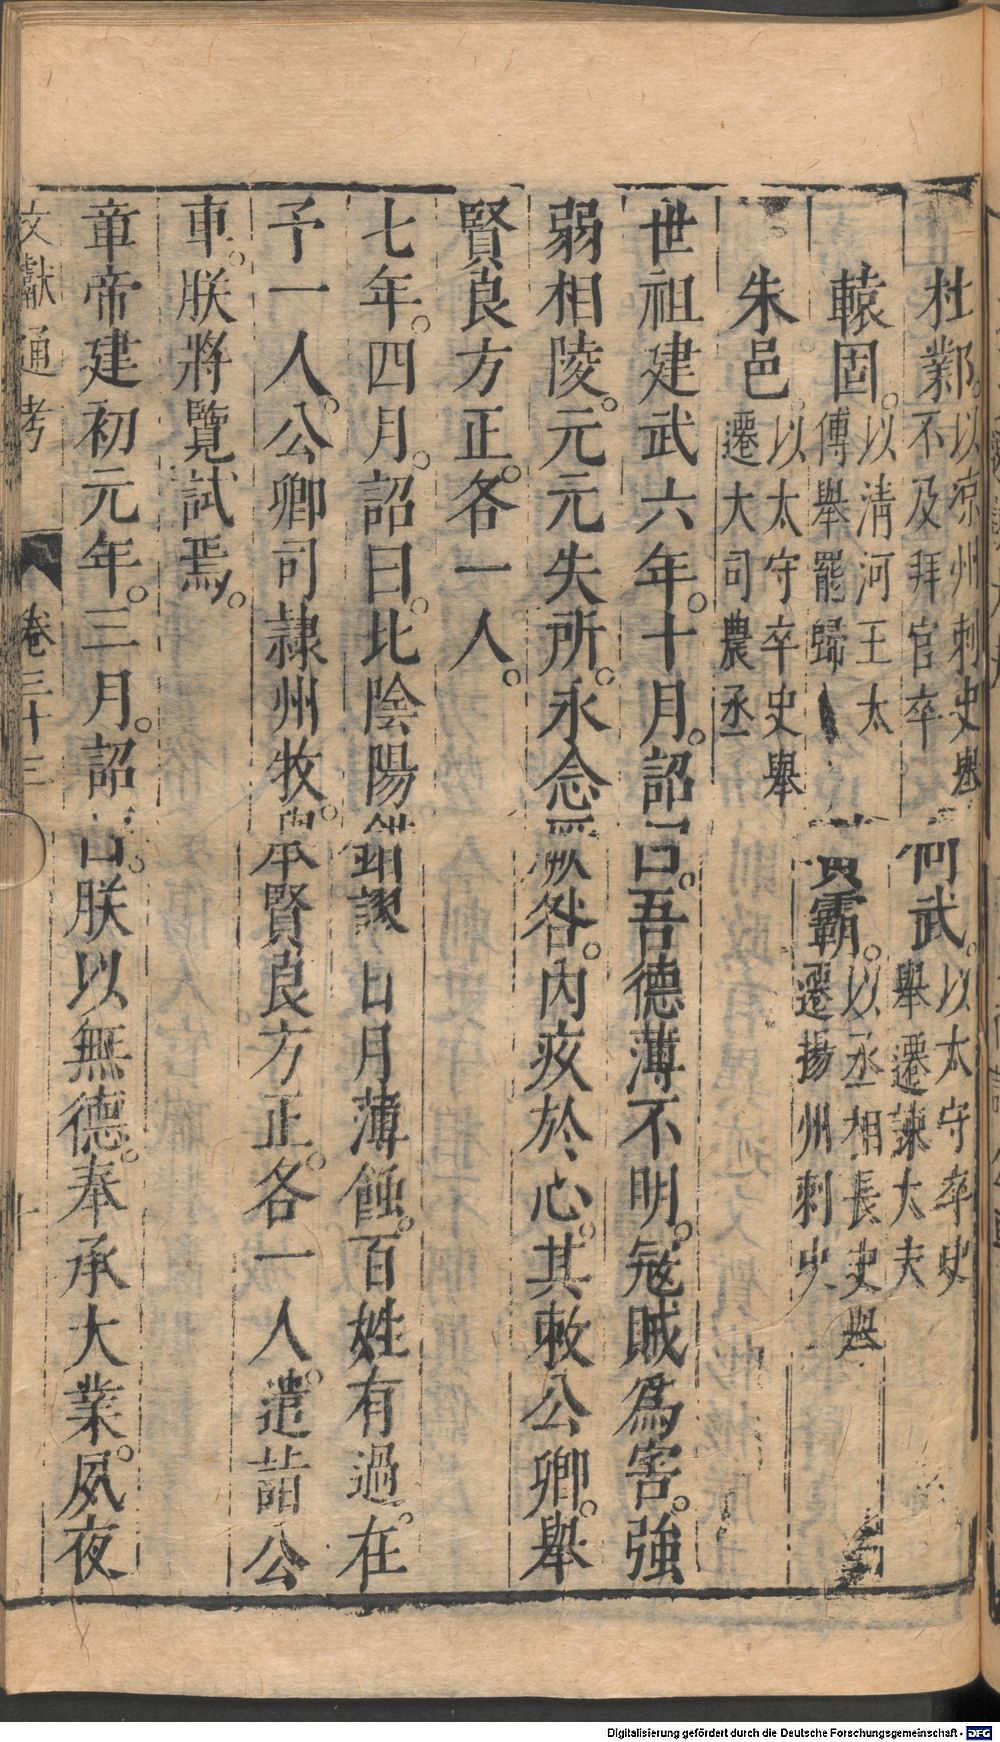 杜鄴。以涼州刺史舉不及拜官卒 何武。以太守卒史舉遷諫大夫
轅固。以清河王太傅舉罷歸 黃霸。以丞相長史舉遷揚州刺史
朱邑。以太守卒史舉遷大司農丞
世祖建武六年。十月。詔曰。吾德薄不明。寇賊爲害。強
弱相陵。元元失所。永念厥咎。內疚於心。其敕公卿。舉
賢良方正。各一人。
七年。四月。詔曰。比陰陽錯謬。日月薄蝕。百姓有過。在
予一人。公卿司隷州牧。舉賢良方正。各一人。遣詣公
車。朕將覽試焉。
章帝建初元年。三月。詔曰。朕以無德。奉承大業。夙夜
文獻通考 卷三十三 十
Digitalisierung gefördert durch die Deutsche Forschungsgemeinschaft - DFG